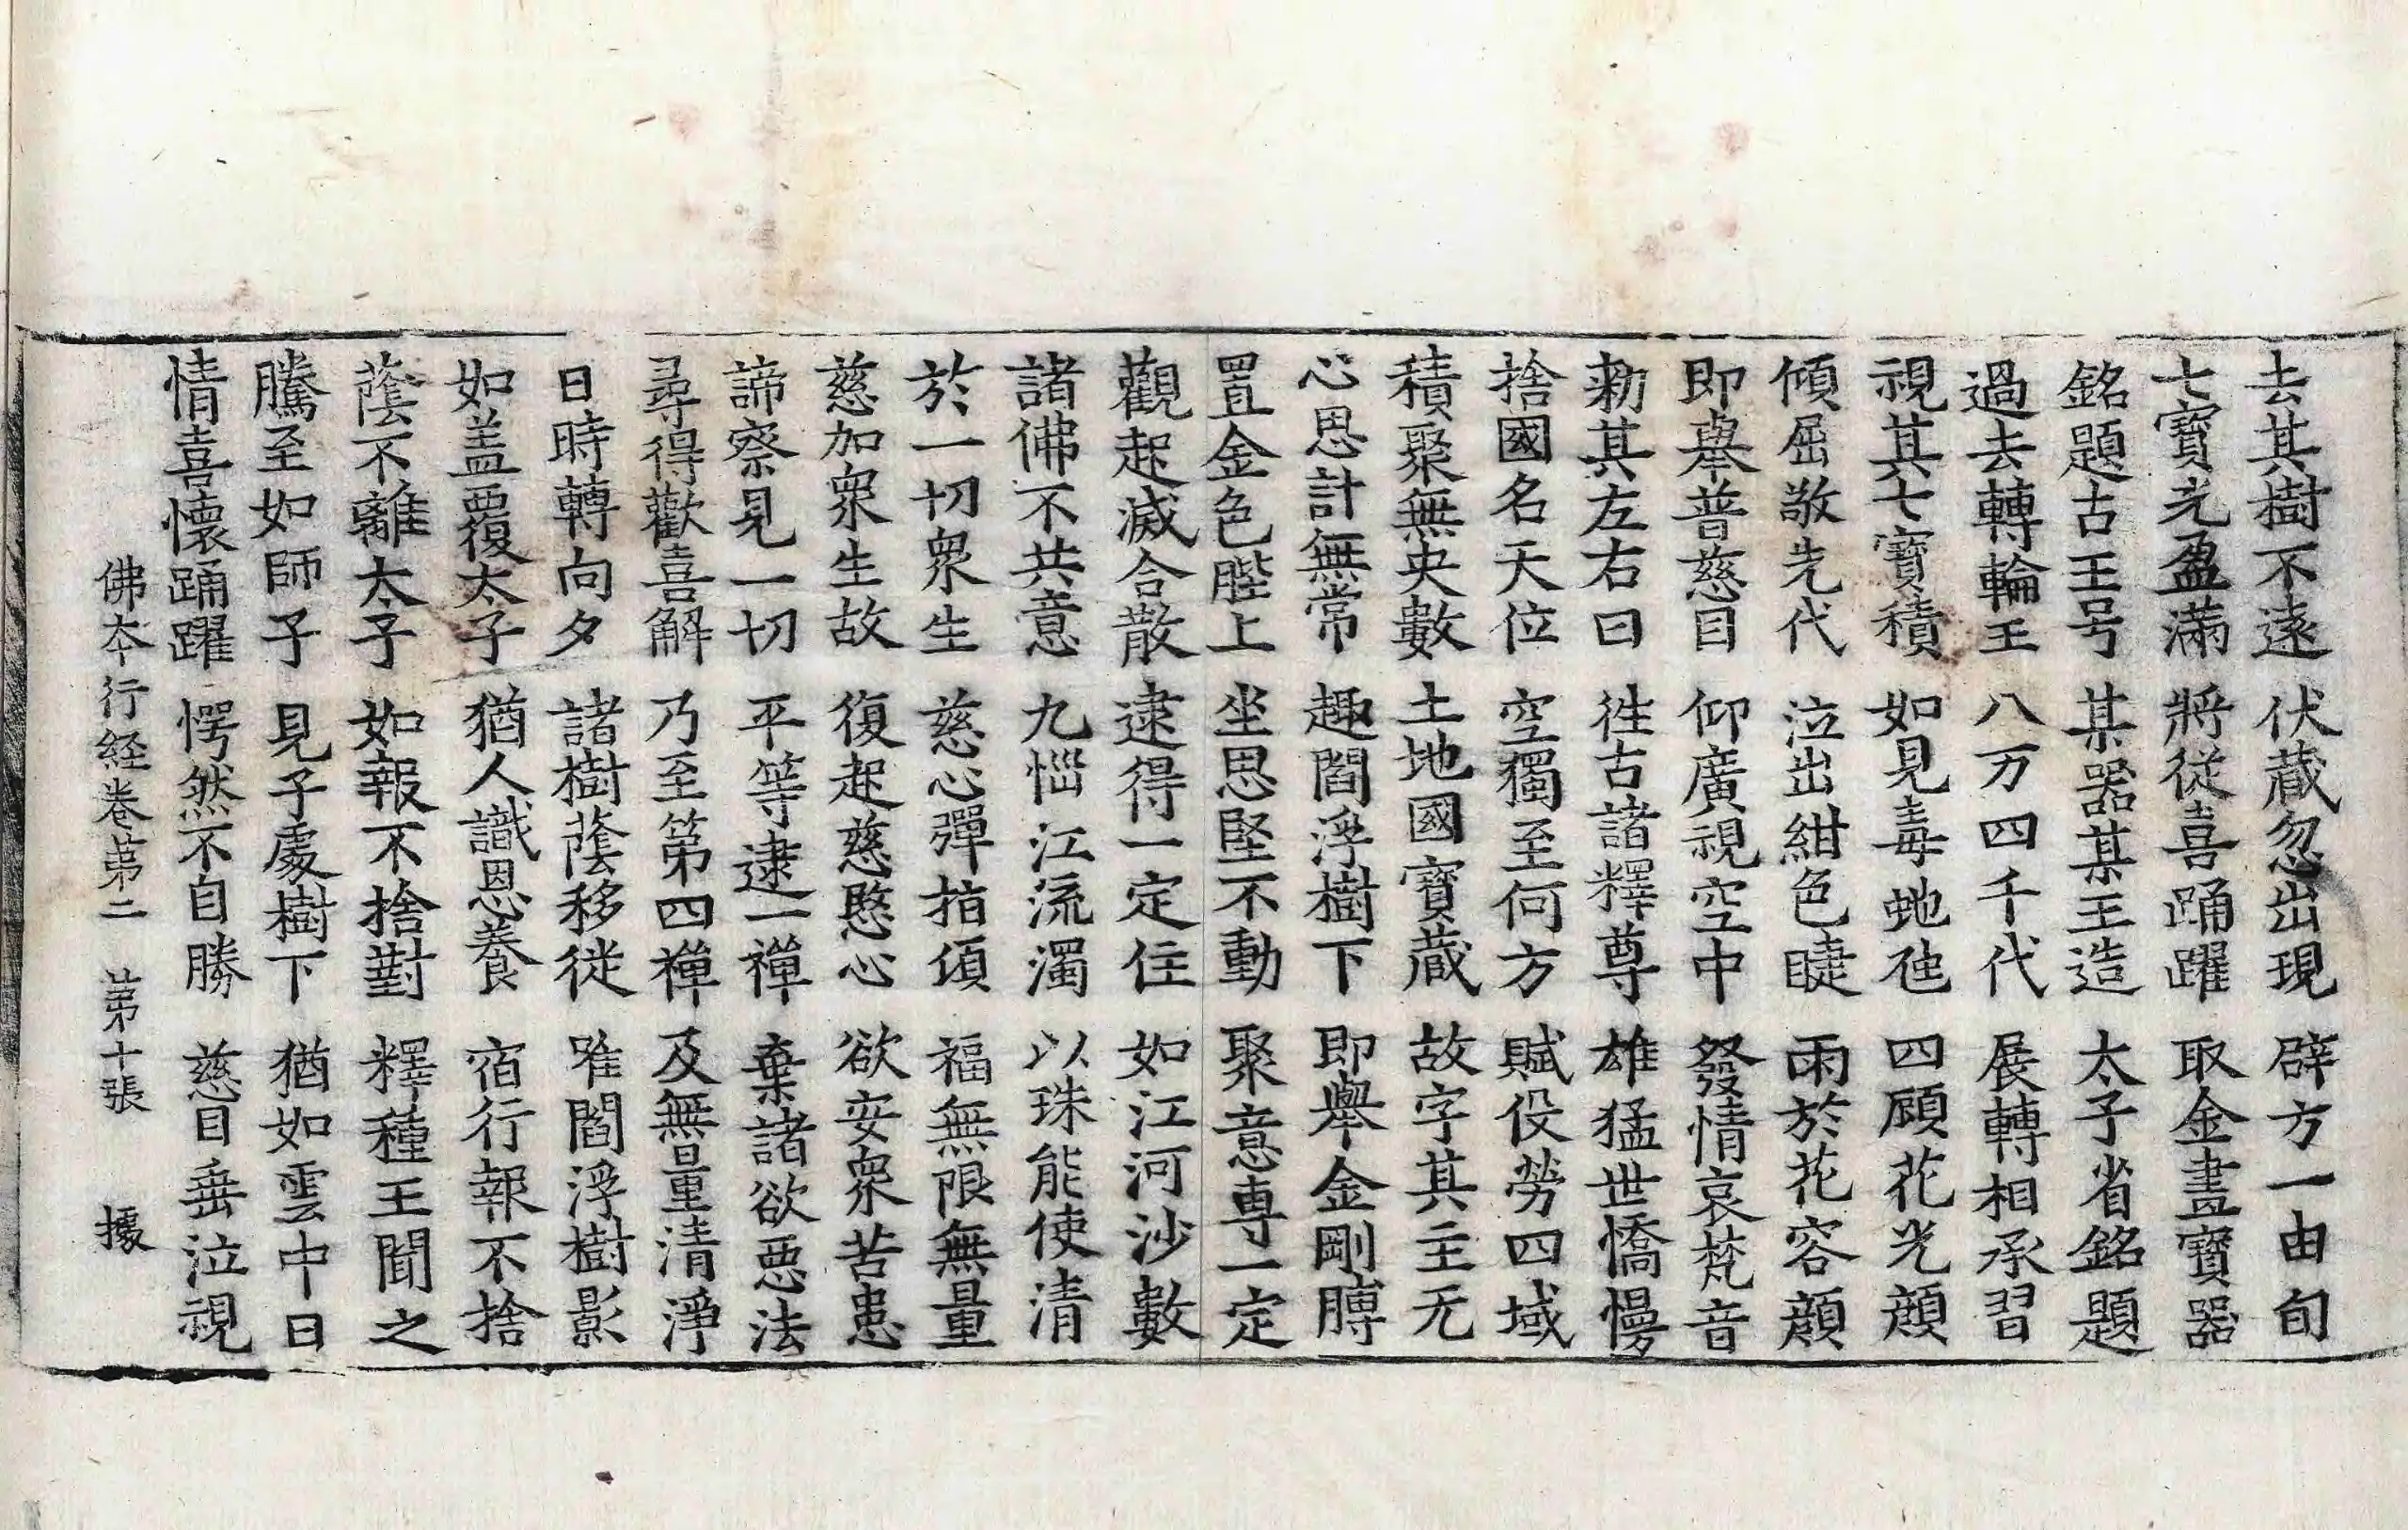 去其樹不遠　伏蔵忽出現　辟方一由旬
七寶光盈滿　將從喜踊躍　取金晝寶器
銘題古王号　某器某王造　太子省銘題
過去轉輪王　八万四千代　展轉相承習
視其七寶積　如見毒虵虺　四顧花光顔
傾屈敬先代　泣出紺色睫　雨於花容顔
即舉普慈目　仰廣視空中　發情哀梵音
勑其左右曰　徃古諸釋尊　雄猛世憍慢
捨國名天位　空獨至何方　賦役勞四域
積聚無央數　土地國寶蔵　故字其主无
心思計無常　趣閻浮樹下　即舉金剛膊
置金色䏶上　坐思堅不動　聚意專一定
觀起滅合散　逮得一定住　如江河沙數
諸佛不共意　九惱江流濁　以珠能使清
於一切衆生　慈心彈指頃　福無限無量
慈加衆生故　復起慈愍心　欲安衆苦患
諦察見一切　平等逮一禪　棄諸欲惡法
尋得歡喜解　乃至第四禪　及無量清淨
日時轉向夕　諸樹蔭移徙　唯閻浮樹影
如盖覆太子　猶人識恩養　宿行報不捨
蔭不離太子　如報不捨對　釋種王聞之
騰至如師子　見子處樹下　猶如雲中日
情喜懷踊躍　愕然不自勝　慈目垂泣視
佛夲行経卷第二　第十張　據